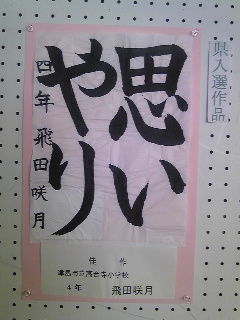 県入選作品
思い
やり
四年 飛田咲月
佳作
津島市立高台寺小学校
4年 飛田咲月